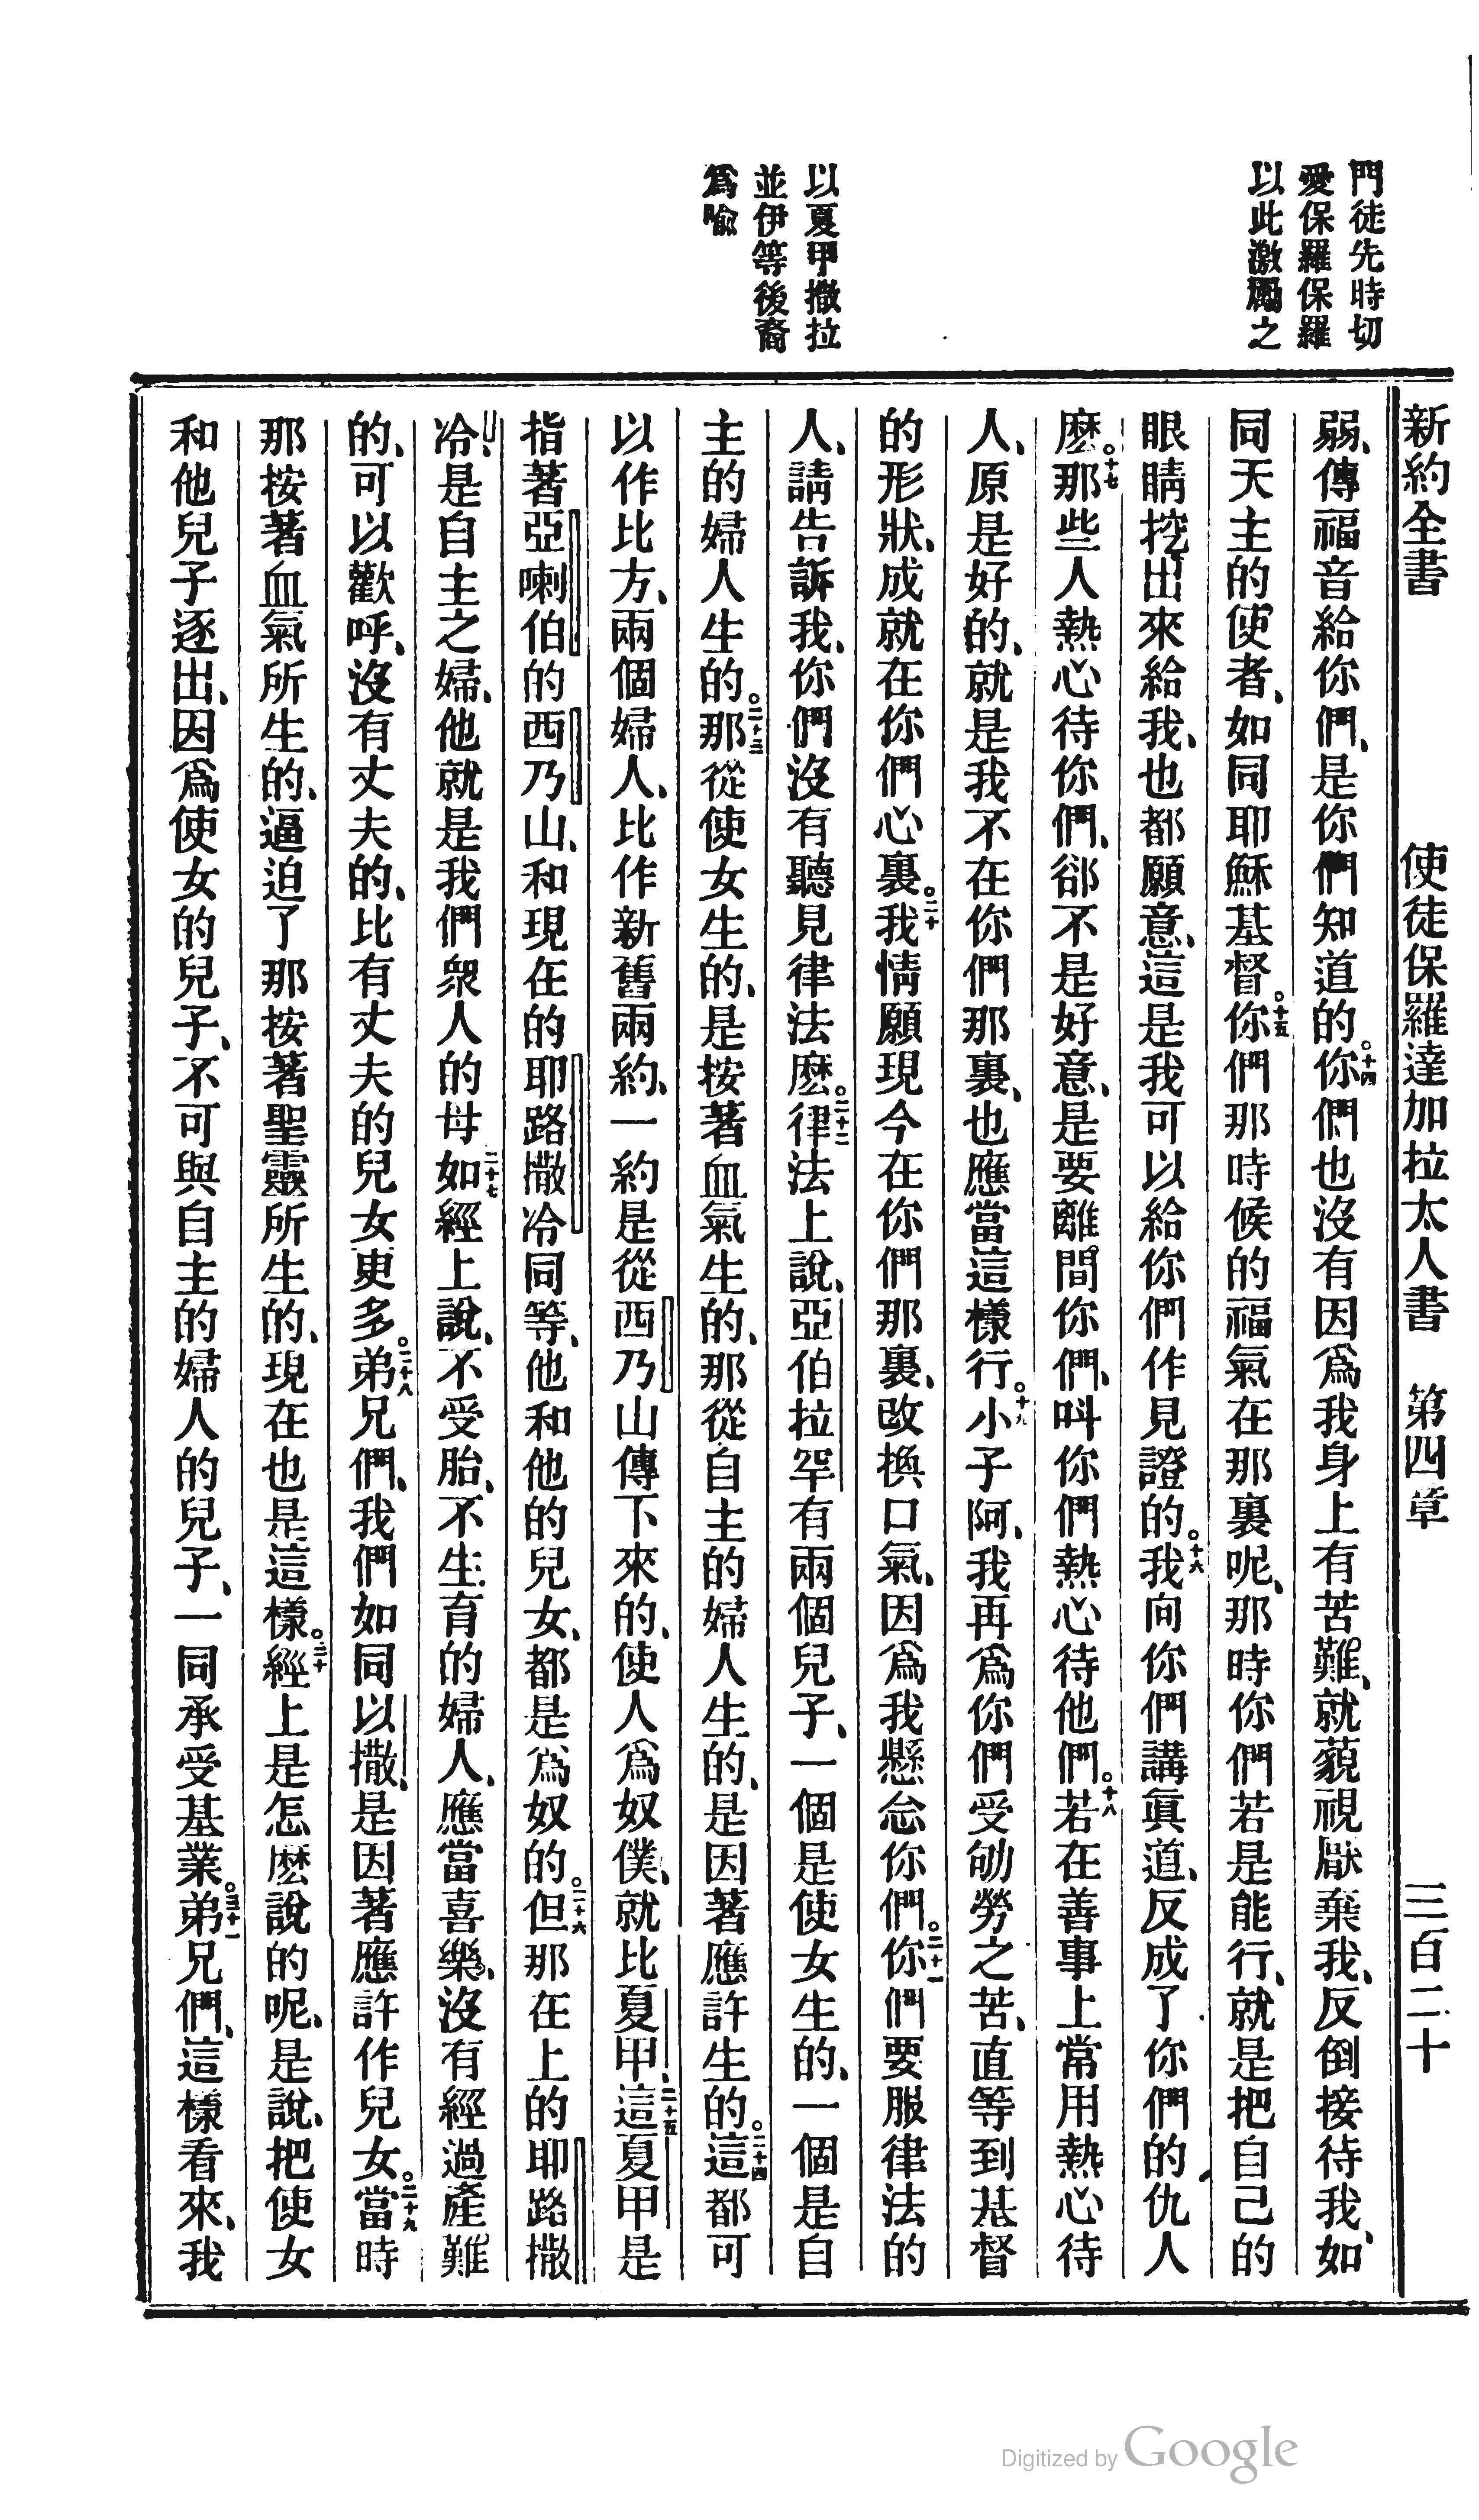 新約全書　使徒保羅達加拉太人書　第四章　三百二十
門徒先時切
愛保羅保羅
以此激勵之
以夏甲撒拉
並伊等後裔
爲喩
弱、傳福音給你們、是你們知道的。十四你們也沒有因爲我身上有苦難、就藐視厭棄我、反倒接待我、如
同天主的使者、如同耶穌基督。十五你們那時候的福氣在那裏呢、那時你們若是能行、就是把自己的
眼睛挖出來給我、也都願意、這是我可以給你們作見證的。十六我向你們講眞道、反成了你們的仇人
麽。十七那些人熱心待你們、郤不是好意、是要離間你們、呌你們熱心待他們。十八若在善事上常用熱心待
人、原是好的、就是我不在你們那裏、也應當這樣行。十九小子阿、我再爲你們受劬勞之苦、直等到基督
的形狀、成就在你們心裏。二十我情願現今在你們那裏、改換口氣、因爲我懸念你們。二十一你們要服律法的
人、請告訴我、你們沒有聽見律法麽。二十二律法上說、亞伯拉罕有兩個兒子、一個是使女生的、一個是自
主的婦人生的。二十三那從使女生的、是按著血氣生的、那從自主的婦人生的、是因著應許生的。二十四這都可
以作比方、兩個婦人、比作新舊兩約、一約是從西乃山傳下來的、使人爲奴僕、就比夏甲、二十五這夏甲是
指著亞喇伯的西乃山、和現在的耶路撒冷同等、他和他的兒女、都是爲奴的。二十六但那在上的耶路撒
冷、是自主之婦、他就是我們衆人的母、二十七如經上說、不受胎、不生育的婦人、應當喜樂、沒有經過產難
的、可以歡呼、沒有丈夫的、比有丈夫的兒女更多。二十八弟兄們、我們如同以撒、是因著應許作兒女。二十九當時
那按著血氣所生的、逼迫了那按著聖靈所生的、現在也是這樣。三十經上是怎麽說的呢、是說、把使女
和他兒子逐出、因爲使女的兒子、不可與自主的婦人的兒子、一同承受基業。三十一弟兄們、這樣看來、我
Digitized by Google